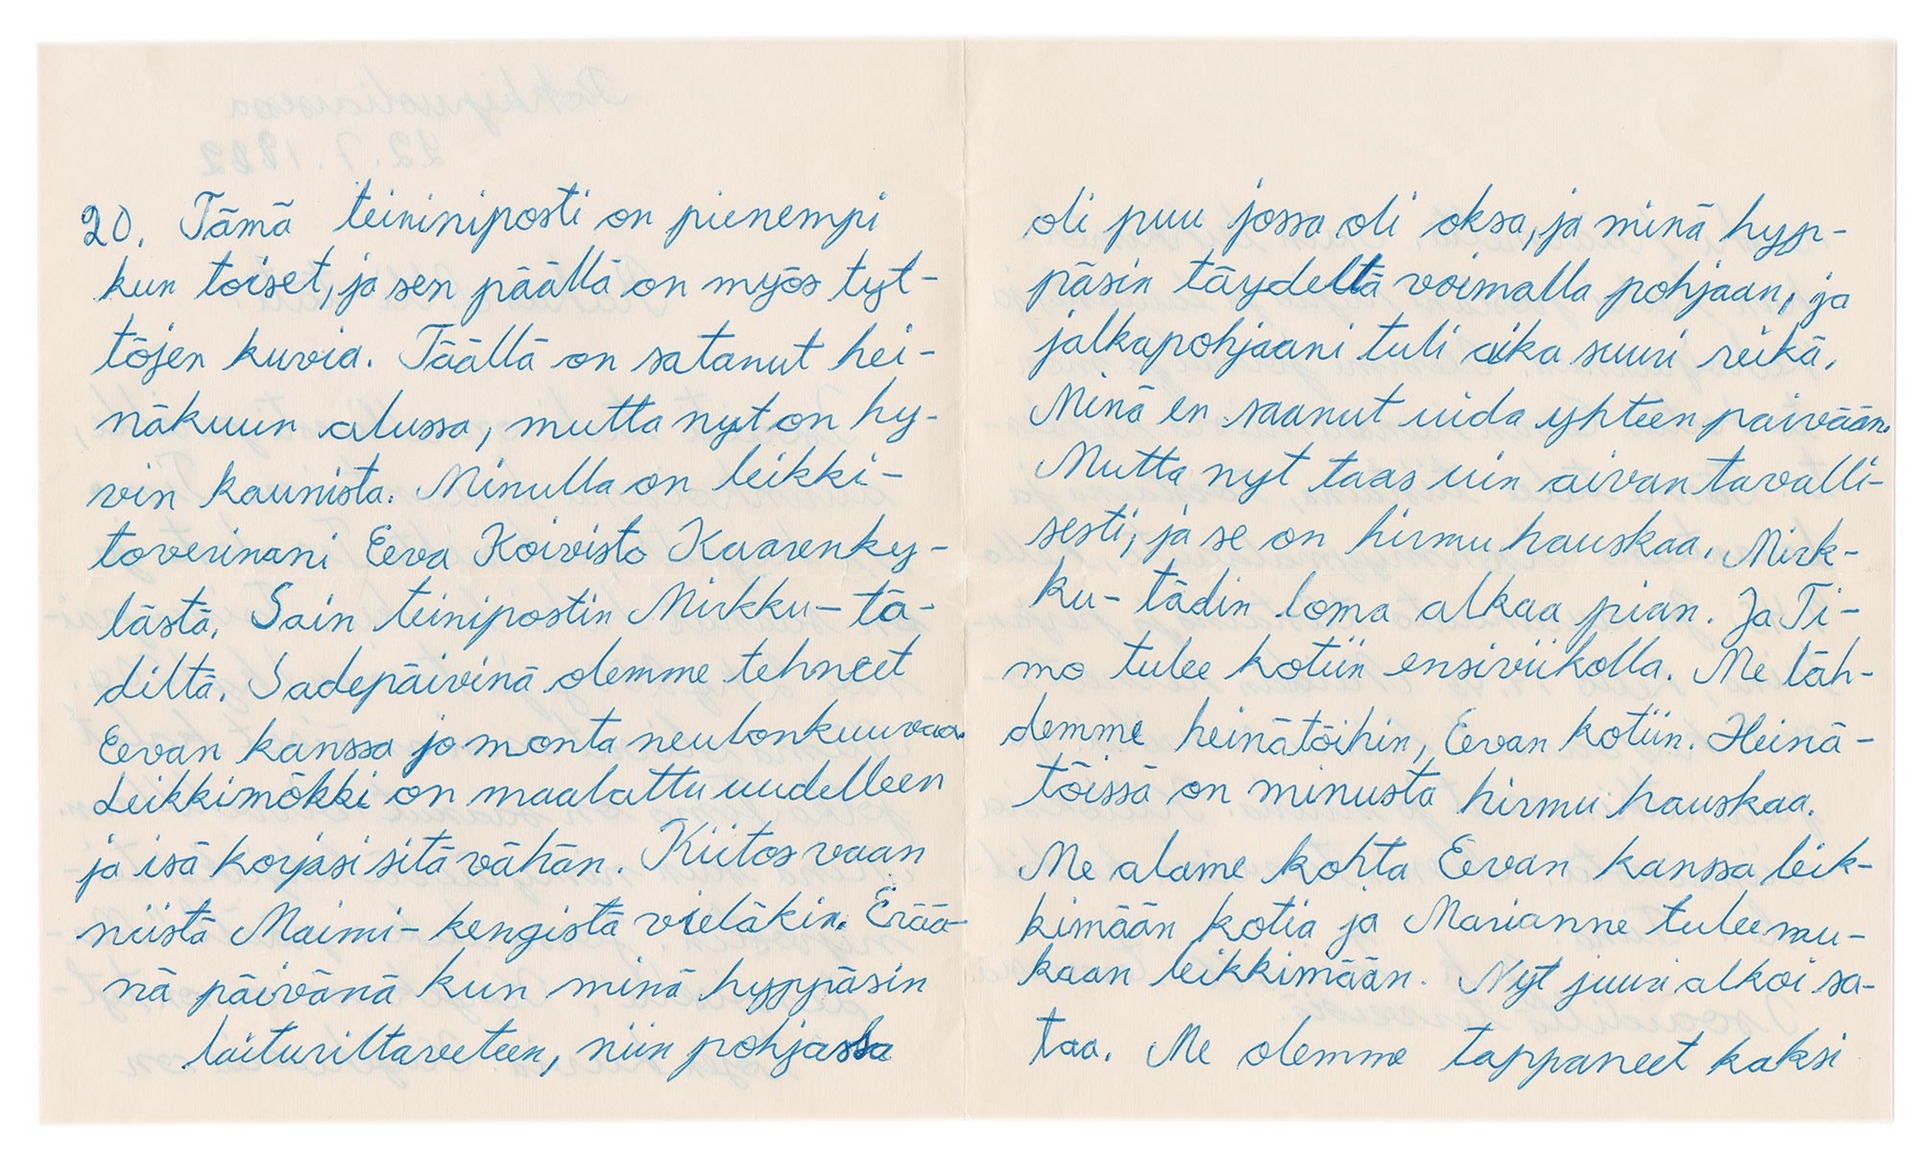 20. Tämä teininiposti on pienempi
kun toiset, ja sen päällä on myös tyt-
töjen kuvia. Täällä on satanut hei-
näkuun alussa, mutta nyt on hy-
vin kaunista. Minulla on leikki-
toverinani Eeva Koivisto Kaarenky-
lästä. Sain teinipostin Mirkku-tä-
diltä. Sadepäivinä olemme tehneet
Eevan kanssa jo monta neulonkuuvaa.
Leikkimökki on maalattu uudelleen
ja isä korjasi sitä vähän. Kiitos vaan
niistä Maimi-kengistä vieläkin. Erää-
nä päivänä kun minä hyppäsin
laiturilta veteen, niin pohjassa
oli puu jossa oli oksa, ja minä hyp-
päsin täydeltä voimalla pohjaan, ja
jalkapohjaani tuli aika suuri reikä.
Minä en saanut uida yhteen paivään.
Mutta nyt taas uin aivan tavalli-
sesti, ja se on hirmu hauskaa. Mirk-
ku-tädin loma alkaa pian. Ja Ti-
mo tulee kotiin ensiviikolla. Me läh-
demme heinätöihin, Eevan kotiin. Heinä-
töissä on minusta hirmu hauskaa.
Me alame kohta Eevan kanssa leik-
kimään kotia ja Marianne tulee mu-
kaan leikkimään. Nyt juuri alkoi sa-
taa. Me olemme tappaneet kaksi